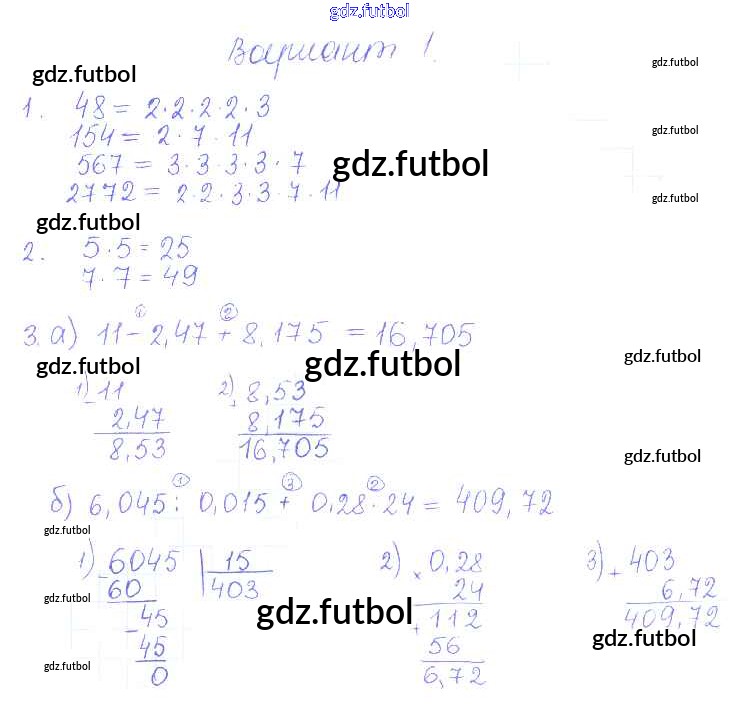 gdz.futbol
Вариант 1.
gdz.futbol
gdz.futbol
1. 48 = 2·2·2·2·3
154 = 2·7·11
gdz.futbol
567 = 3·3·3·3·7
gdz.futbol
2772 = 2·2·3·3·7·11
gdz.futbol
gdz.futbol
2. 5·5 = 25
7·7 = 49
① ②
3. а) 11 - 2,47 + 8,175 = 16,705
gdz.futbol
gdz.futbol
gdz.futbol
1) - 11 2) + 8,53
2,47 8,175
8,53 16,705
gdz.futbol
① ③ ②
б) 6,045 : 0,015 + 0,28·24 = 409,72
gdz.futbol
1) - 6045 | 15 2) × 0,28 3) + 403
60 403 24 6,72
gdz.futbol
- 45 + 112 409,72
gdz.futbol
45 56
gdz.futbol
0 6,72
gdz.futbol